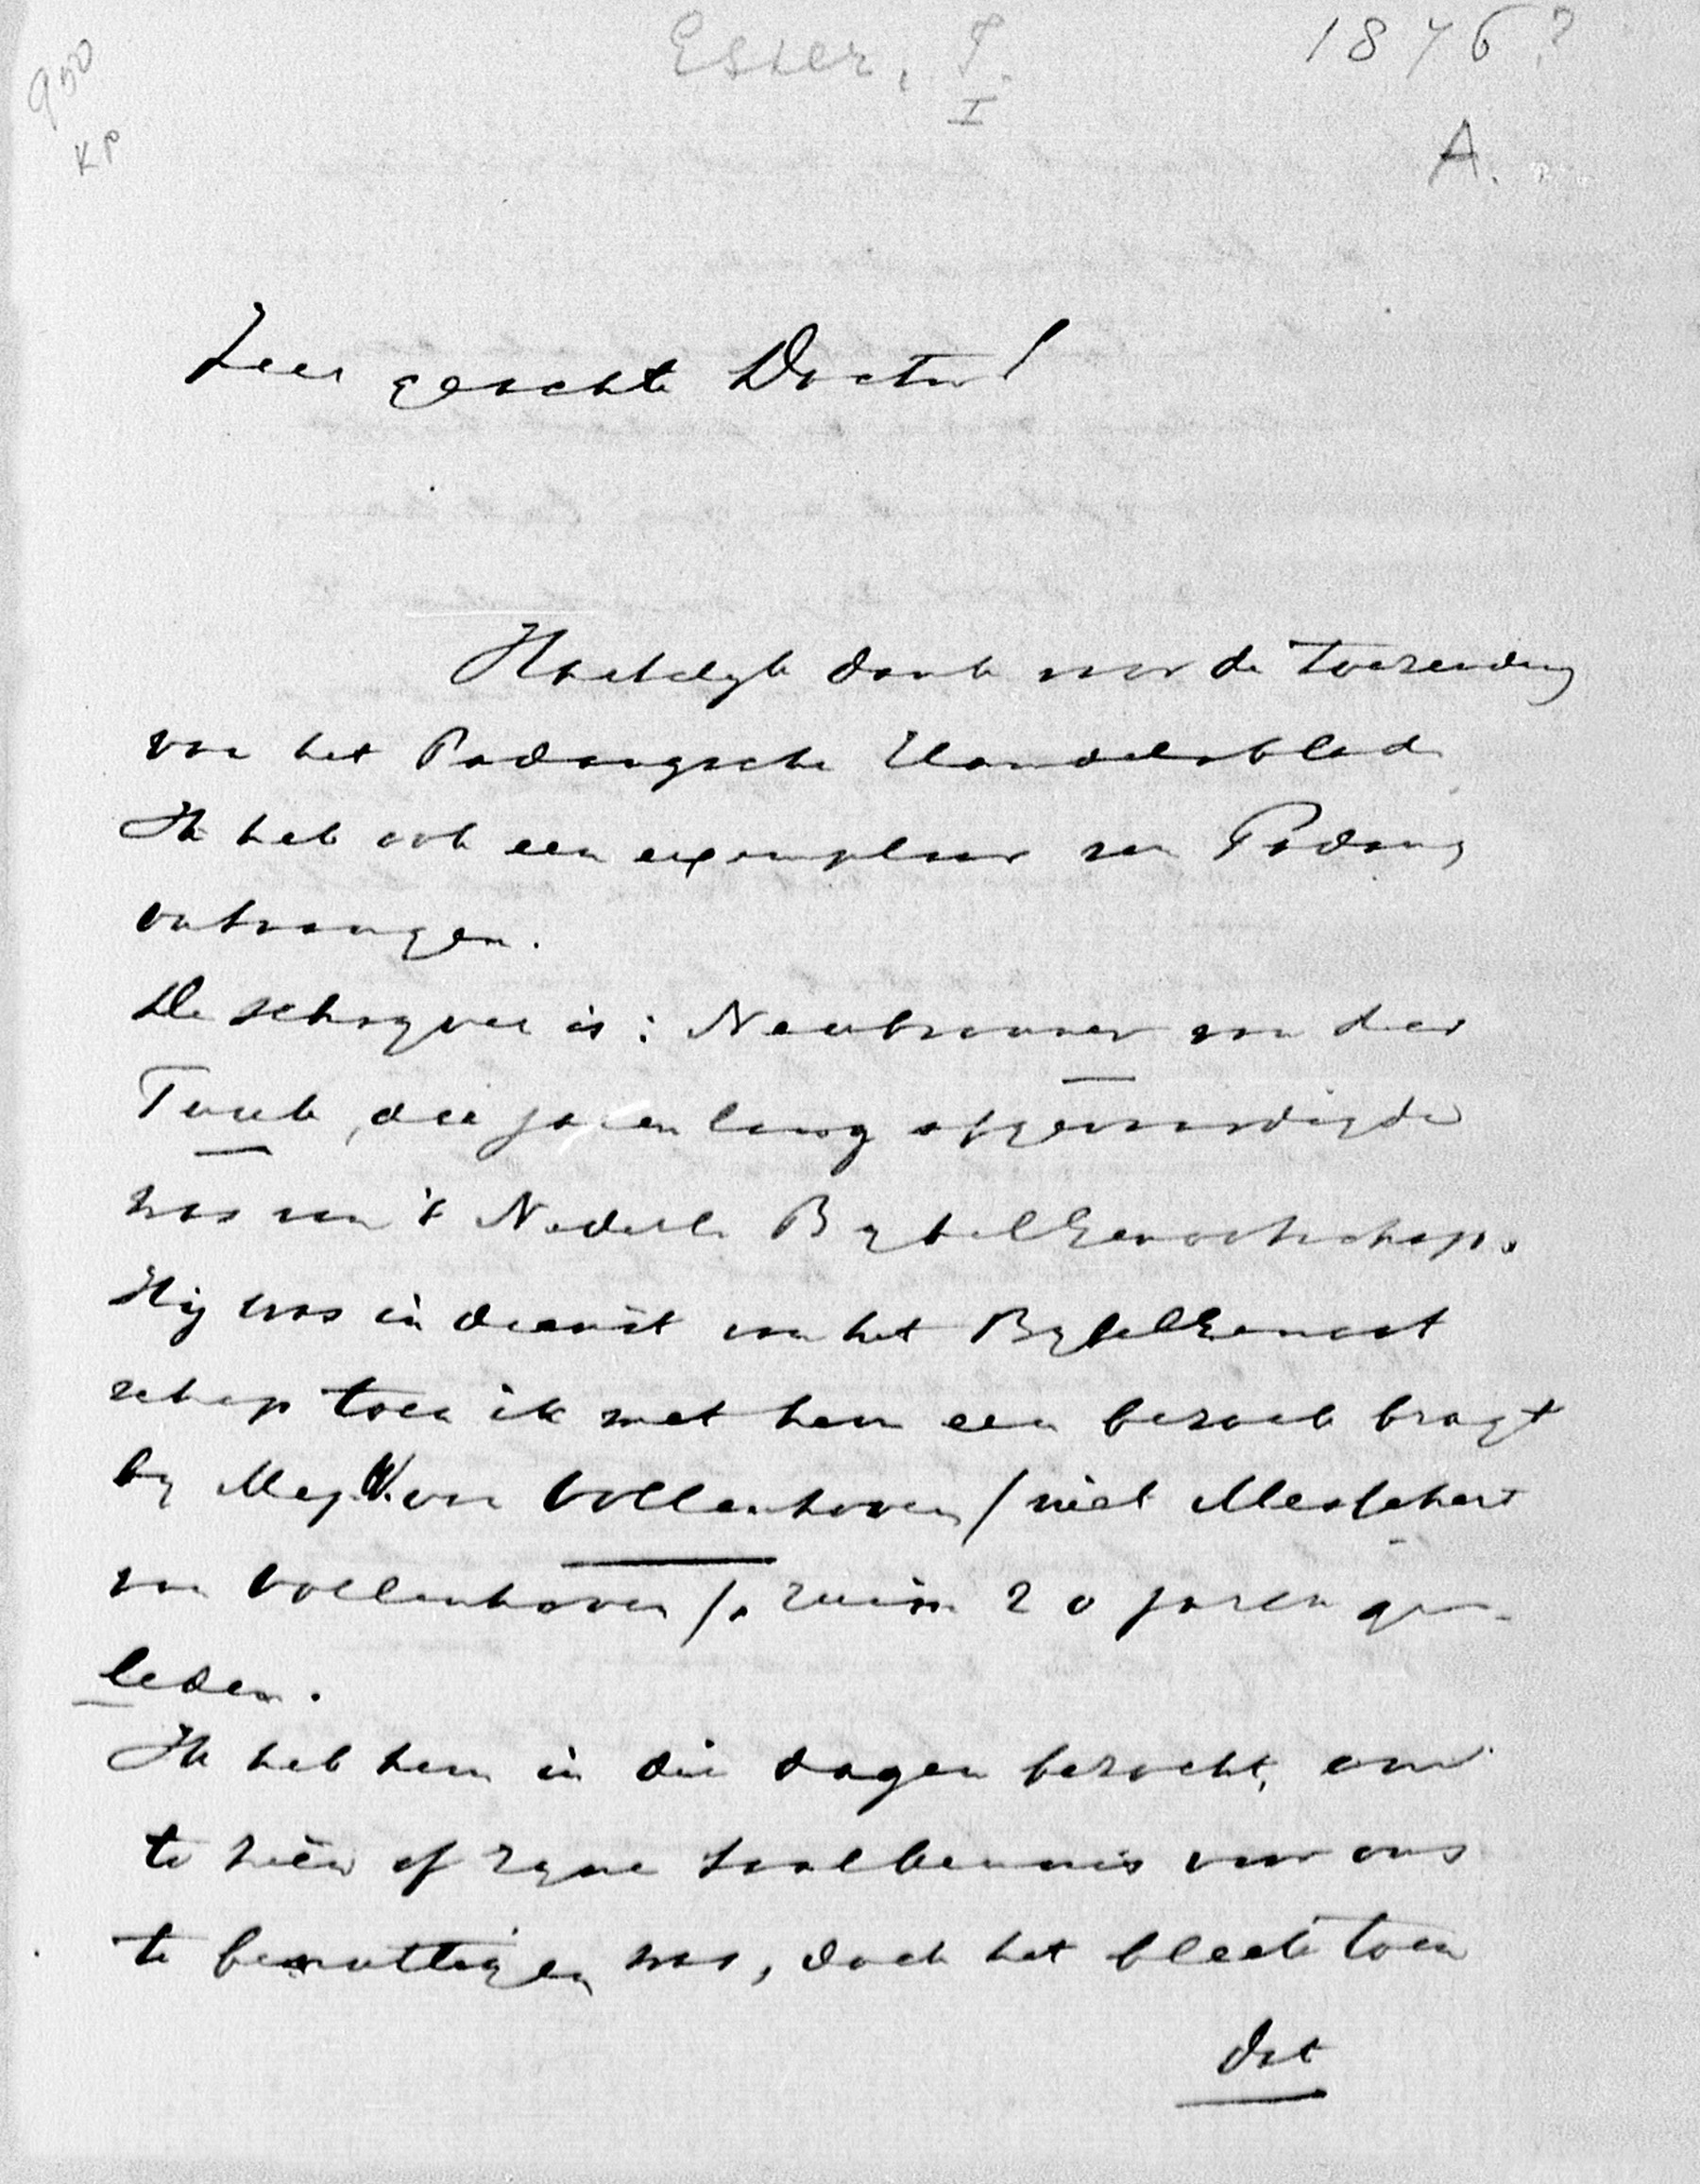 950
KP
Esser, I.
I
1876?
A.
Zeer geachte Doctor!
Hartelyk dank voor de toezending
van het Padangsche Handelsblad
Ik heb ook een exemplaar van Padang
ontvangen.
De schryver is: Neubronner van der
Tuuk, die jaren lang afgevaardigde
was van 't Nederl. BybelGenootschap.
Hij was in dienst van het BybelGenoot
schap toen ik met hem een bezoek bragt
by Mej. W. van Vollenhoven / niet Messchert
van Vollenhoven /. ruim 20 jaren ge-
leden.
Ik heb hem in die dagen bezocht, om
te zien of zyne taalkennis voor ons
te benuttigen was, doch het bleek toen
dat